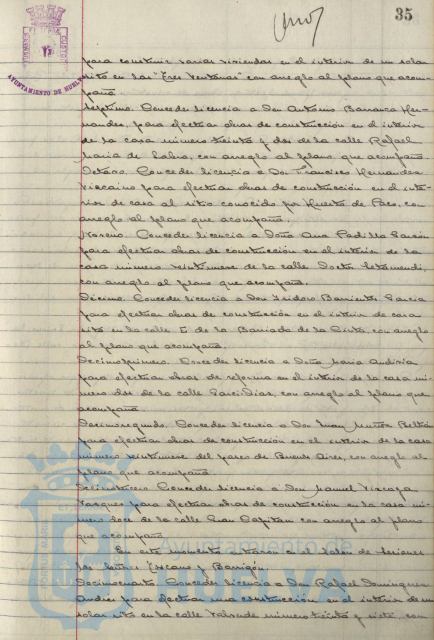 35
AYUNTAMIENTO DE HUELVA
para construir varias viviendas en el interior de un solar
sito en las "Tres Ventanas" con arreglo al plano que acom-
paña.
Séptimo. Conceder licencia a Don Antonio Barranca Her-
nandez, para efectuar obras de construcción en el interior
de la casa número treinta y dos de la calle Rafael
Maria de Labra, con arreglo al plano que acompaña.
Octavo. Conceder licencia a Don Francisco Hernandez
Vizcaino para efectuar obras de construcción en el inte-
rior de casa al sitio conocido por Huerto de Paco, con
arreglo al plano que acompaña.
Noveno. Conceder licencia a Doña Ana Padilla Garcia
para efectuar obras de construcción en el interior de la
casa número veintinueve de la calle Doctor Letamendi,
con arreglo al plano que acompaña.
Décimo. Conceder licencia a Don Isidoro Barrientos Garcia
para efectuar obras de construcción en el interior de casa
sita en la calle E de la Barriada de la Cinta, con arreglo
al plano que acompaña.
Decimoprimero. Conceder licencia a Doña Maria
para efectuar obras de reforma en el interior de la casa nú-
mero dos de la calle Garci Diaz, con arreglo al plano que
acompaña.
Decimosegundo. Conceder licencia a Don Juan Muñoz Beltrán
para efectuar obras de construcción en el interior de la casa
número veintinueve del paseo de Buenos Aires, con arreglo al
plano que acompaña.
Decimotercero. Conceder licencia a Don Manuel Vizcaya
Vazquez para efectuar obras de construcción en la casa nú-
mero doce de la calle Gran Capitan con arreglo al plano
que acompaña.
En este momento entraron en el Salón de Sesiones
los señores Escano y Barrigón.
Decimocuarto. Conceder licencia a Don Rafael Dominguez
Andrés para efectuar una construcción en el interior de un
solar sito en la calle Valverde número treinta y siete, con
Ayuntamiento de
HUELVA